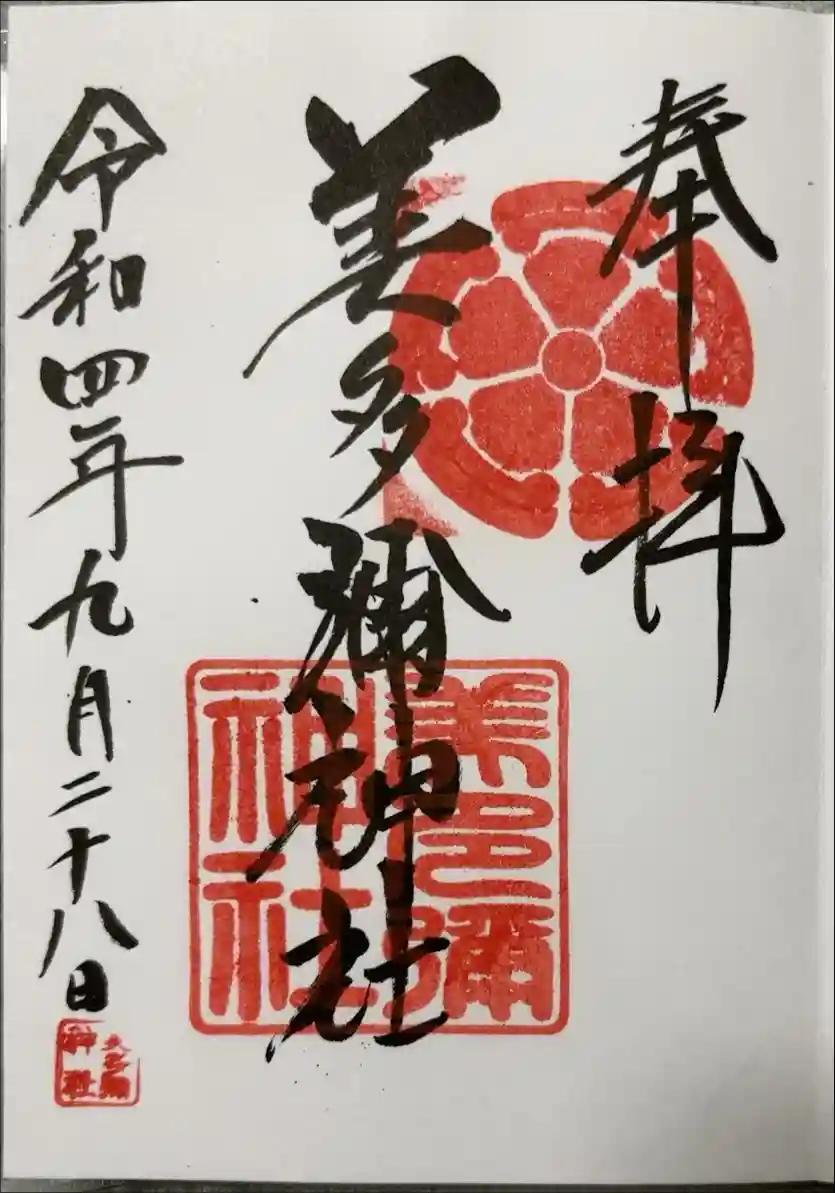 奉拝
美多彌神社
美多彌
神社
令和四年九月二十八日
美多彌
神社